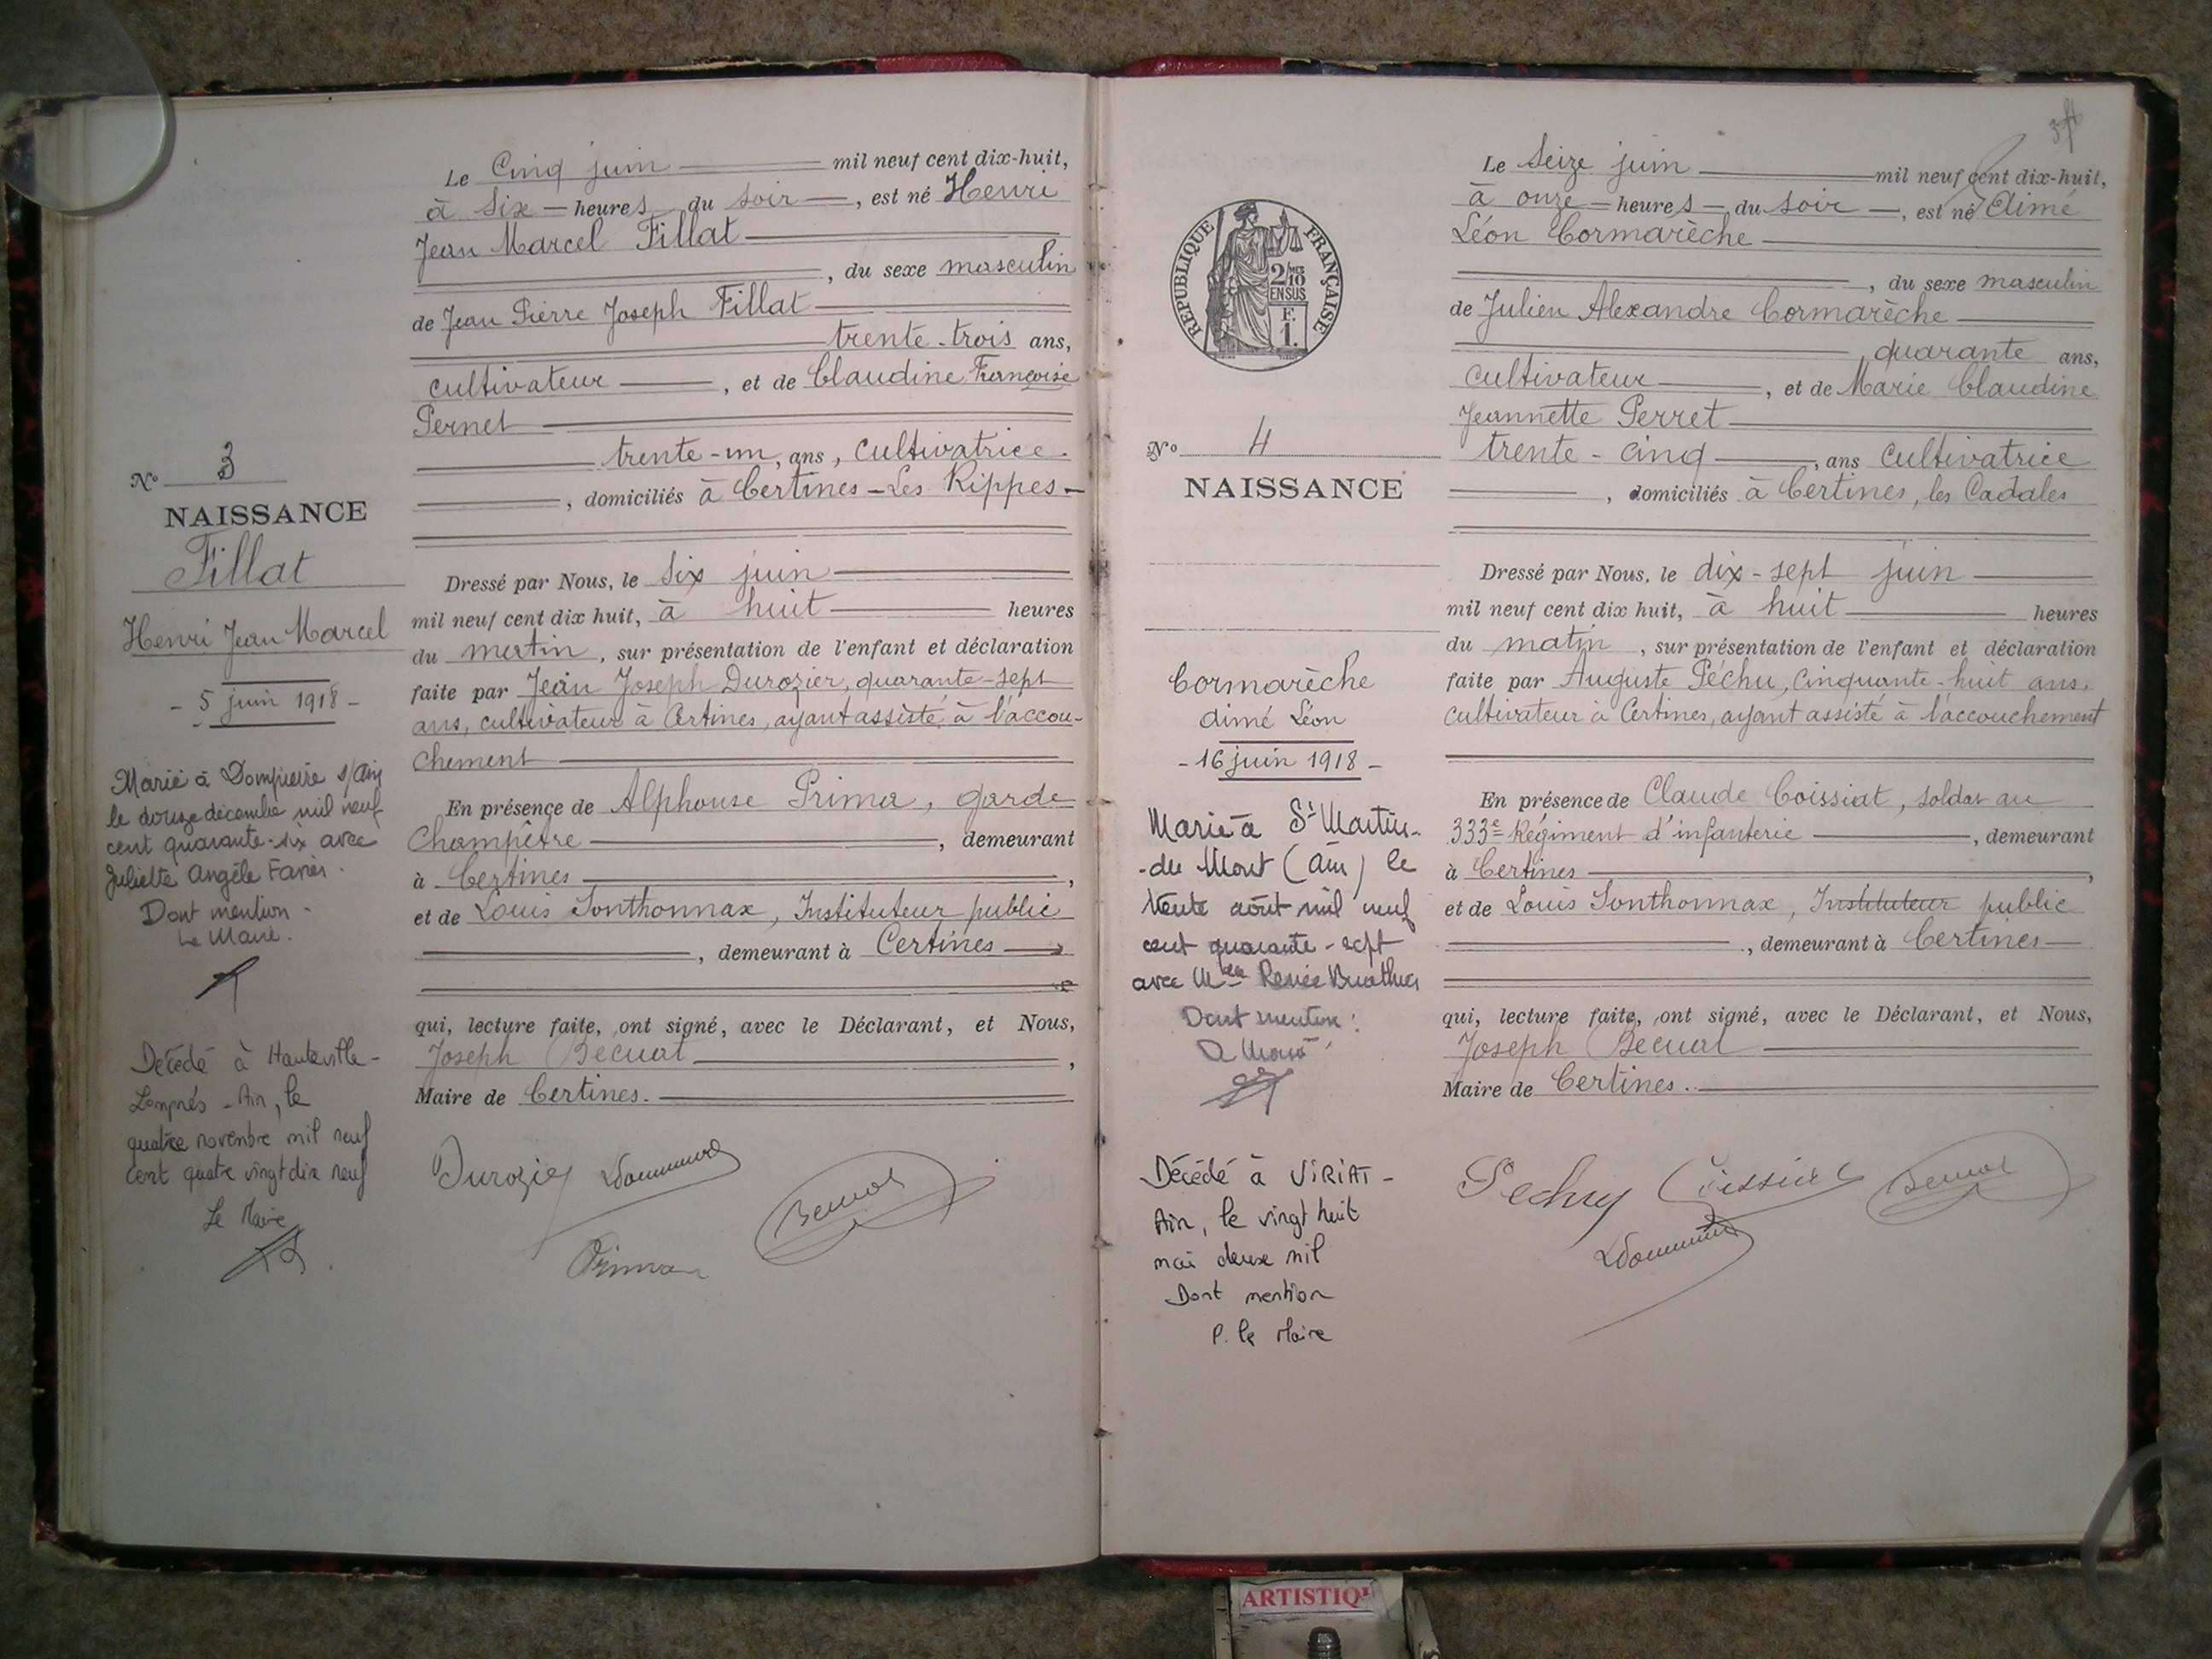 Le Cinq juin mil neuf cent dix-huit,
à six heures du soir, est né Henri
Jean Marcel Fillat
, du sexe masculin
de Jean Pierre Joseph Fillat
trente-trois ans,
cultivateur, et de Claudine Françoise
Pernet
trente-un, ans, cultivatrice.
, domiciliés à Certines-Les Rippes-
N° 3
NAISSANCE
Fillat
Henri Jean Marcel
- 5 juin 1918 -
Dressé par Nous, le six juin
mil neuf cent dix huit, à huit heures
du matin, sur présentation de l'enfant et déclaration
faite par Jean Joseph Durozier, quarante-sept
ans, cultivateur à Certines, ayant assisté à l'accou-
chement
En présence de Alphonse Prima, garde
Champêtre, demeurant
à Certines,
et de Louis Sonthonnax, Instituteur public
, demeurant à Certines
qui, lecture faite, ont signé, avec le Déclarant, et Nous,
Joseph Becuat,
Maire de Certines.
Marié à Dompierre s/Ain
le douze décembre mil neuf
cent quarante-six avec
Juliette Angèle
Dont mention -
Le Maire.
Décédé à Hauteville-
Lompnés - Ain, le
quatre novembre mil neuf
cent quatre vingt dix neuf
Le Maire
Durozier
Prima
RÉPUBLIQUE FRANÇAISE
2/10
EN SUS
F.
1.
Le Seize juin mil neuf cent dix-huit,
à onze heures du soir, est né Aimé
Léon Cormarèche
, du sexe masculin
de Julien Alexandre Cormarèche
, quarante ans,
cultivateur, et de Marie Claudine
Jeannette Perret
trente-cinq, ans cultivatrice
, domiciliés à Certines, les Cadales
N° 4
NAISSANCE
Cormarèche
Aimé Léon
- 16 juin 1918 -
Dressé par Nous, le dix-sept juin
mil neuf cent dix huit, à huit heures
du matin, sur présentation de l'enfant et déclaration
faite par Auguste Péchu, cinquante-huit ans,
cultivateur à Certines, ayant assisté à l'accouchement
En présence de Claude Coissiat, soldat au
333e Régiment d'infanterie, demeurant
à Certines,
et de Louis Sonthonnax, Instituteur public
, demeurant à Certines
qui, lecture faite, ont signé, avec le Déclarant, et Nous,
Joseph Becuat
Maire de Certines.
Marié à St Martin-
-du Mont (Ain) le
trente août mil neuf
cent quarante-sept
avec Renée
Dont mention
Décédé à VIRIAT -
Ain, le vingt huit
mai deux mil
Dont mention
P. le Maire
Pechu Coissiat
ARTISTIQ